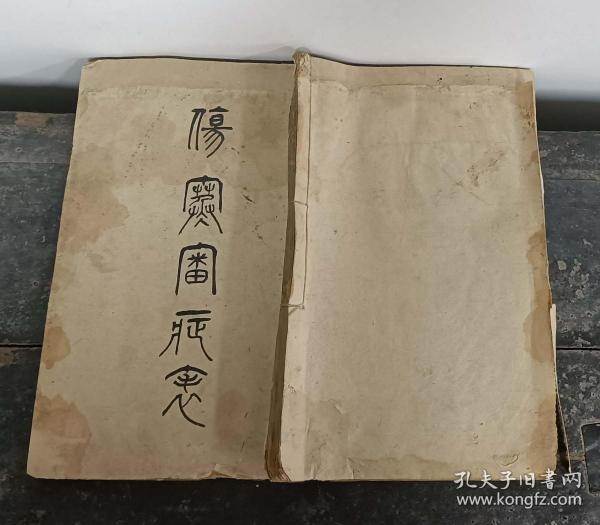 傷寒審症表
孔夫子旧书网
www.kongfz.com